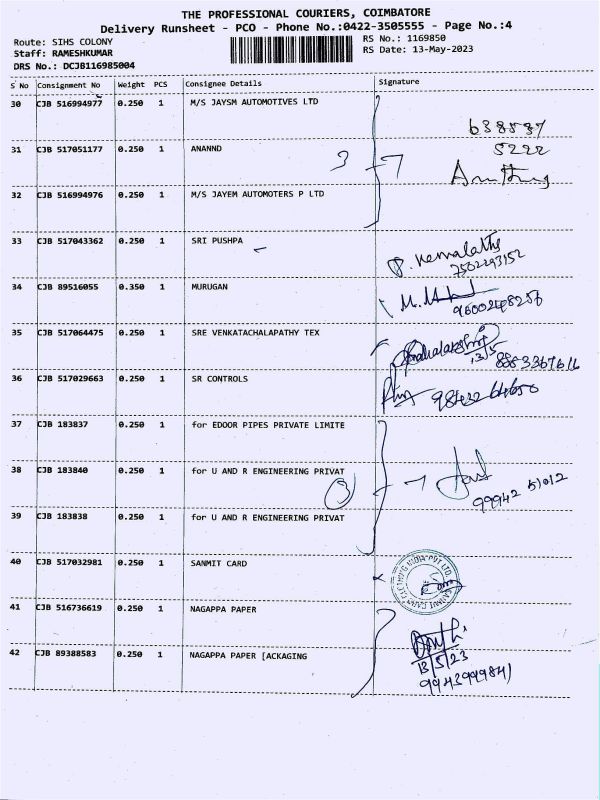 THE PROFESSIONAL COURIERS, COIMBATORE
Delivery Runsheet - PCO - Phone No.:0422-3505555 - Page No.:4
Route: SIHS COLONY
RS No.: 1169850
Staff: RAMESHKUMAR
RS Date: 13-May-2023
DRS No.: DCJB116985004
S No Consignment No Weight PCS Consignee Details Signature
30 CJB 516994977 0.250 1 M/S JAYSM AUTOMOTIVES LTD
638537
31 CJB 517051177 0.250 1 ANANND 3 5222
32 CJB 516994976 0.250 1 M/S JAYEM AUTOMOTERS P LTD
33 CJB 517043362 0.250 1 SRI PUSHPA
7502293152
34 CJB 89516055 0.350 1 MURUGAN
35 CJB 517064475 0.250 1 SRE VENKATACHALAPATHY TEX
13/5 8883367616
36 CJB 517029663 0.250 1 SR CONTROLS
37 CJB 183837 0.250 1 for EDOOR PIPES PRIVATE LIMITE
38 CJB 183840 0.250 1 for U AND R ENGINEERING PRIVAT
3 99942 51012
39 CJB 183838 0.250 1 for U AND R ENGINEERING PRIVAT
40 CJB 517032981 0.250 1 SANMIT CARD
41 CJB 516736619 0.250 1 NAGAPPA PAPER
42 CJB 89388583 0.250 1 NAGAPPA PAPER [ACKAGING
13/5/23
9943999841